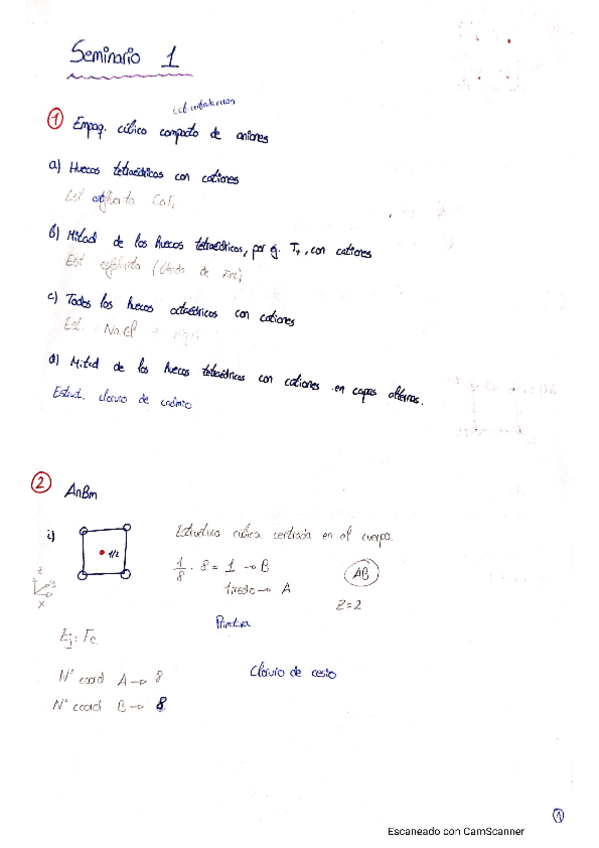 Seminario 1
① Empaq. cúbico compacto de aniones
a) Huecos tetraédricos con cationes
Est. CaF₂
b) Mitad de los huecos tetraédricos, por ej. T+, con cationes
Est (blenda de zinc)
c) Todos los huecos octaédricos con cationes
Est. NaCl
d) Mitad de los huecos tetraédricos con cationes en capas alternas.
Estruct. cloruro de cadmio
② AnBm
i)
1/2
Estructura cúbica centrada en el cuerpo.
1/8 · 8 = 1 → B
AB
1 → A
Z=2
z
y
x
Ej: Fe
Nº coord A → 8
Cloruro de cesio
Nº coord B → 8
1
Escaneado con CamScanner